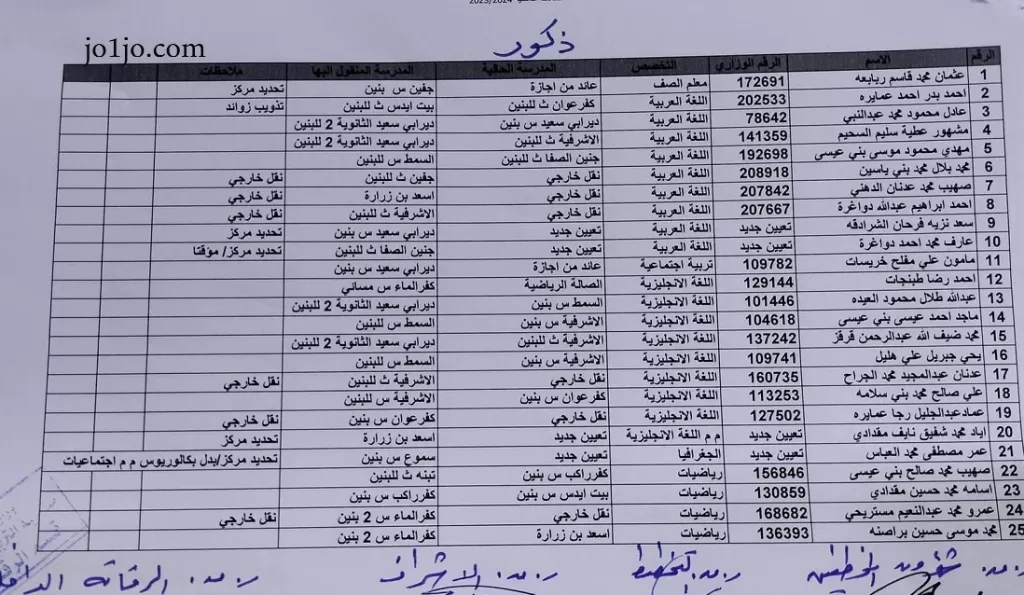 2023/2024
jo1jo.com
ذكور
الرقم الاسم الرقم الوزاري التخصص المدرسة الحالية المدرسة المنقول اليها ملاحظات
1 عثمان محمد قاسم ربابعه 172691 معلم الصف عائد من اجازة جفين س بنين تحديد مركز
2 احمد بدر احمد عمايره 202533 اللغة العربية كفرعوان ث للبنين بيت ايدس ث للبنين تذويب زوائد
3 عادل محمود محمد عبدالنبي 78642 اللغة العربية ديرابي سعيد س بنين ديرابي سعيد الثانوية 2 للبنين
4 مشهور عطية سليم السحيم 141359 اللغة العربية الاشرفية ث للبنين ديرابي سعيد الثانوية 2 للبنين
5 مهدي محمود موسى بني عيسى 192698 اللغة العربية جنين الصفا ث للبنين السمط س للبنين
6 محمد بلال محمد بني ياسين 208918 اللغة العربية نقل خارجي جفين ث للبنين نقل خارجي
7 صهيب محمد عدنان الدهني 207842 اللغة العربية نقل خارجي اسعد بن زرارة نقل خارجي
8 احمد ابراهيم عبدالله دواغرة 207667 اللغة العربية نقل خارجي الاشرفية ث للبنين نقل خارجي
9 سعد نزيه فرحان الشرادقه تعيين جديد اللغة العربية تعيين جديد ديرابي سعيد س بنين تحديد مركز
10 عارف محمد احمد دواغرة تعيين جديد اللغة العربية تعيين جديد جنين الصفا ث للبنين تحديد مركز/ مؤقتا
11 مامون علي مفلح خريسات 109782 تربية اجتماعية عائد من اجازة ديرابي سعيد س بنين
12 احمد رضا طبنجات 129144 اللغة الانجليزية الصالة الرياضية كفرالماء س مسائي
13 عبدالله طلال محمود العيده 101446 اللغة الانجليزية السمط س بنين ديرابي سعيد الثانوية 2 للبنين
14 ماجد احمد عيسى بني عيسى 104618 اللغة الانجليزية الاشرفية س بنين السمط س للبنين
15 محمد ضيف الله عبدالرحمن قرقز 137242 اللغة الانجليزية الاشرفية س بنين ديرابي سعيد الثانوية 2 للبنين
16 يحي جبريل علي هليل 109741 اللغة الانجليزية الاشرفية س بنين السمط س للبنين
17 عدنان عبدالمجيد محمد الجراح 160735 اللغة الانجليزية نقل خارجي الاشرفية ث للبنين نقل خارجي
18 علي صالح محمد بني سلامه 113253 اللغة الانجليزية كفرعوان س بنين الاشرفية س للبنين
19 عمادعبدالجليل رجا عمايره 127502 اللغة الانجليزية نقل خارجي كفرعوان س بنين نقل خارجي
20 اياد محمد شفيق نايف مقدادي تعيين جديد م م اللغة الانجليزية تعيين جديد اسعد بن زرارة تحديد مركز
21 عمر مصطفى محمد العباس تعيين جديد الجغرافيا تعيين جديد سموع س بنين تحديد مركز/بدل بكالوريوس م م اجتماعيات
22 صهيب محمد صالح بني عيسى 156846 رياضيات كفرراكب س بنين تبنه ث للبنين
23 اسامه محمد حسين مقدادي 130859 رياضيات بيت ايدس س بنين كفرراكب س بنين
24 عمرو محمد عبدالنعيم مستريحي 168682 رياضيات نقل خارجي كفرالماء س 2 بنين نقل خارجي
25 محمد موسى حسين براصنه 136393 رياضيات اسعد بن زرارة كفرالماء س 2 بنين
ر.م. شؤون الموظفين ر.م. التخطيط ر.م. الاشراف ر.م. الرقابة